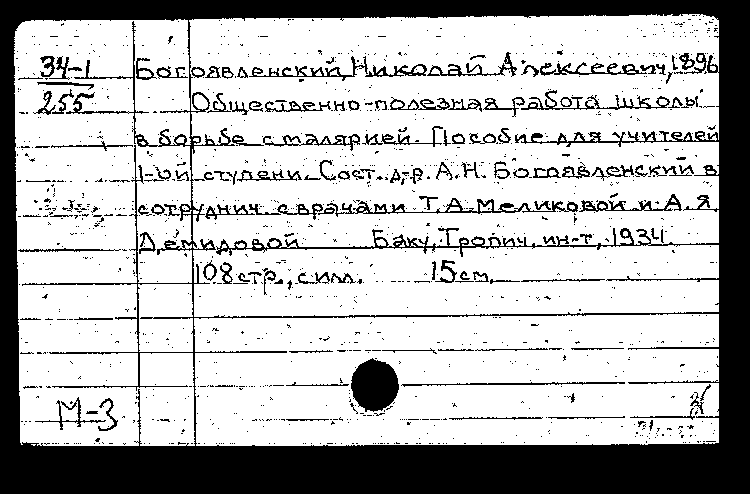 34-1
255
Богоявленский, Николай Алексеевич, 1896
Общественно-полезная работа школы
в борьбе с малярией. Пособие для учителей
1-ой ступени. Сост. д-р. А.Н. Богоявленский в
сотруднич. с врачами Т.А. Меликовой и А.Я.
Демидовой Баку, Тропич. ин-т, 1934.
108 стр., с илл. 15 см.
М-3